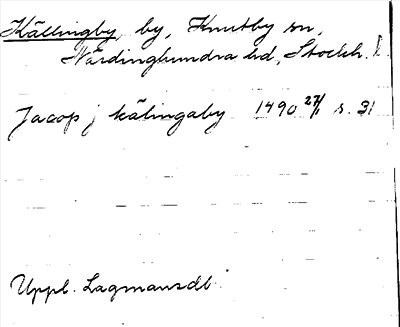 Källingby, by, Knutby sn,
Närdinghundra hd, Stockh. l
Jacop j kälingaby 1490 27/1 s. 31
Uppl. Lagmansdb